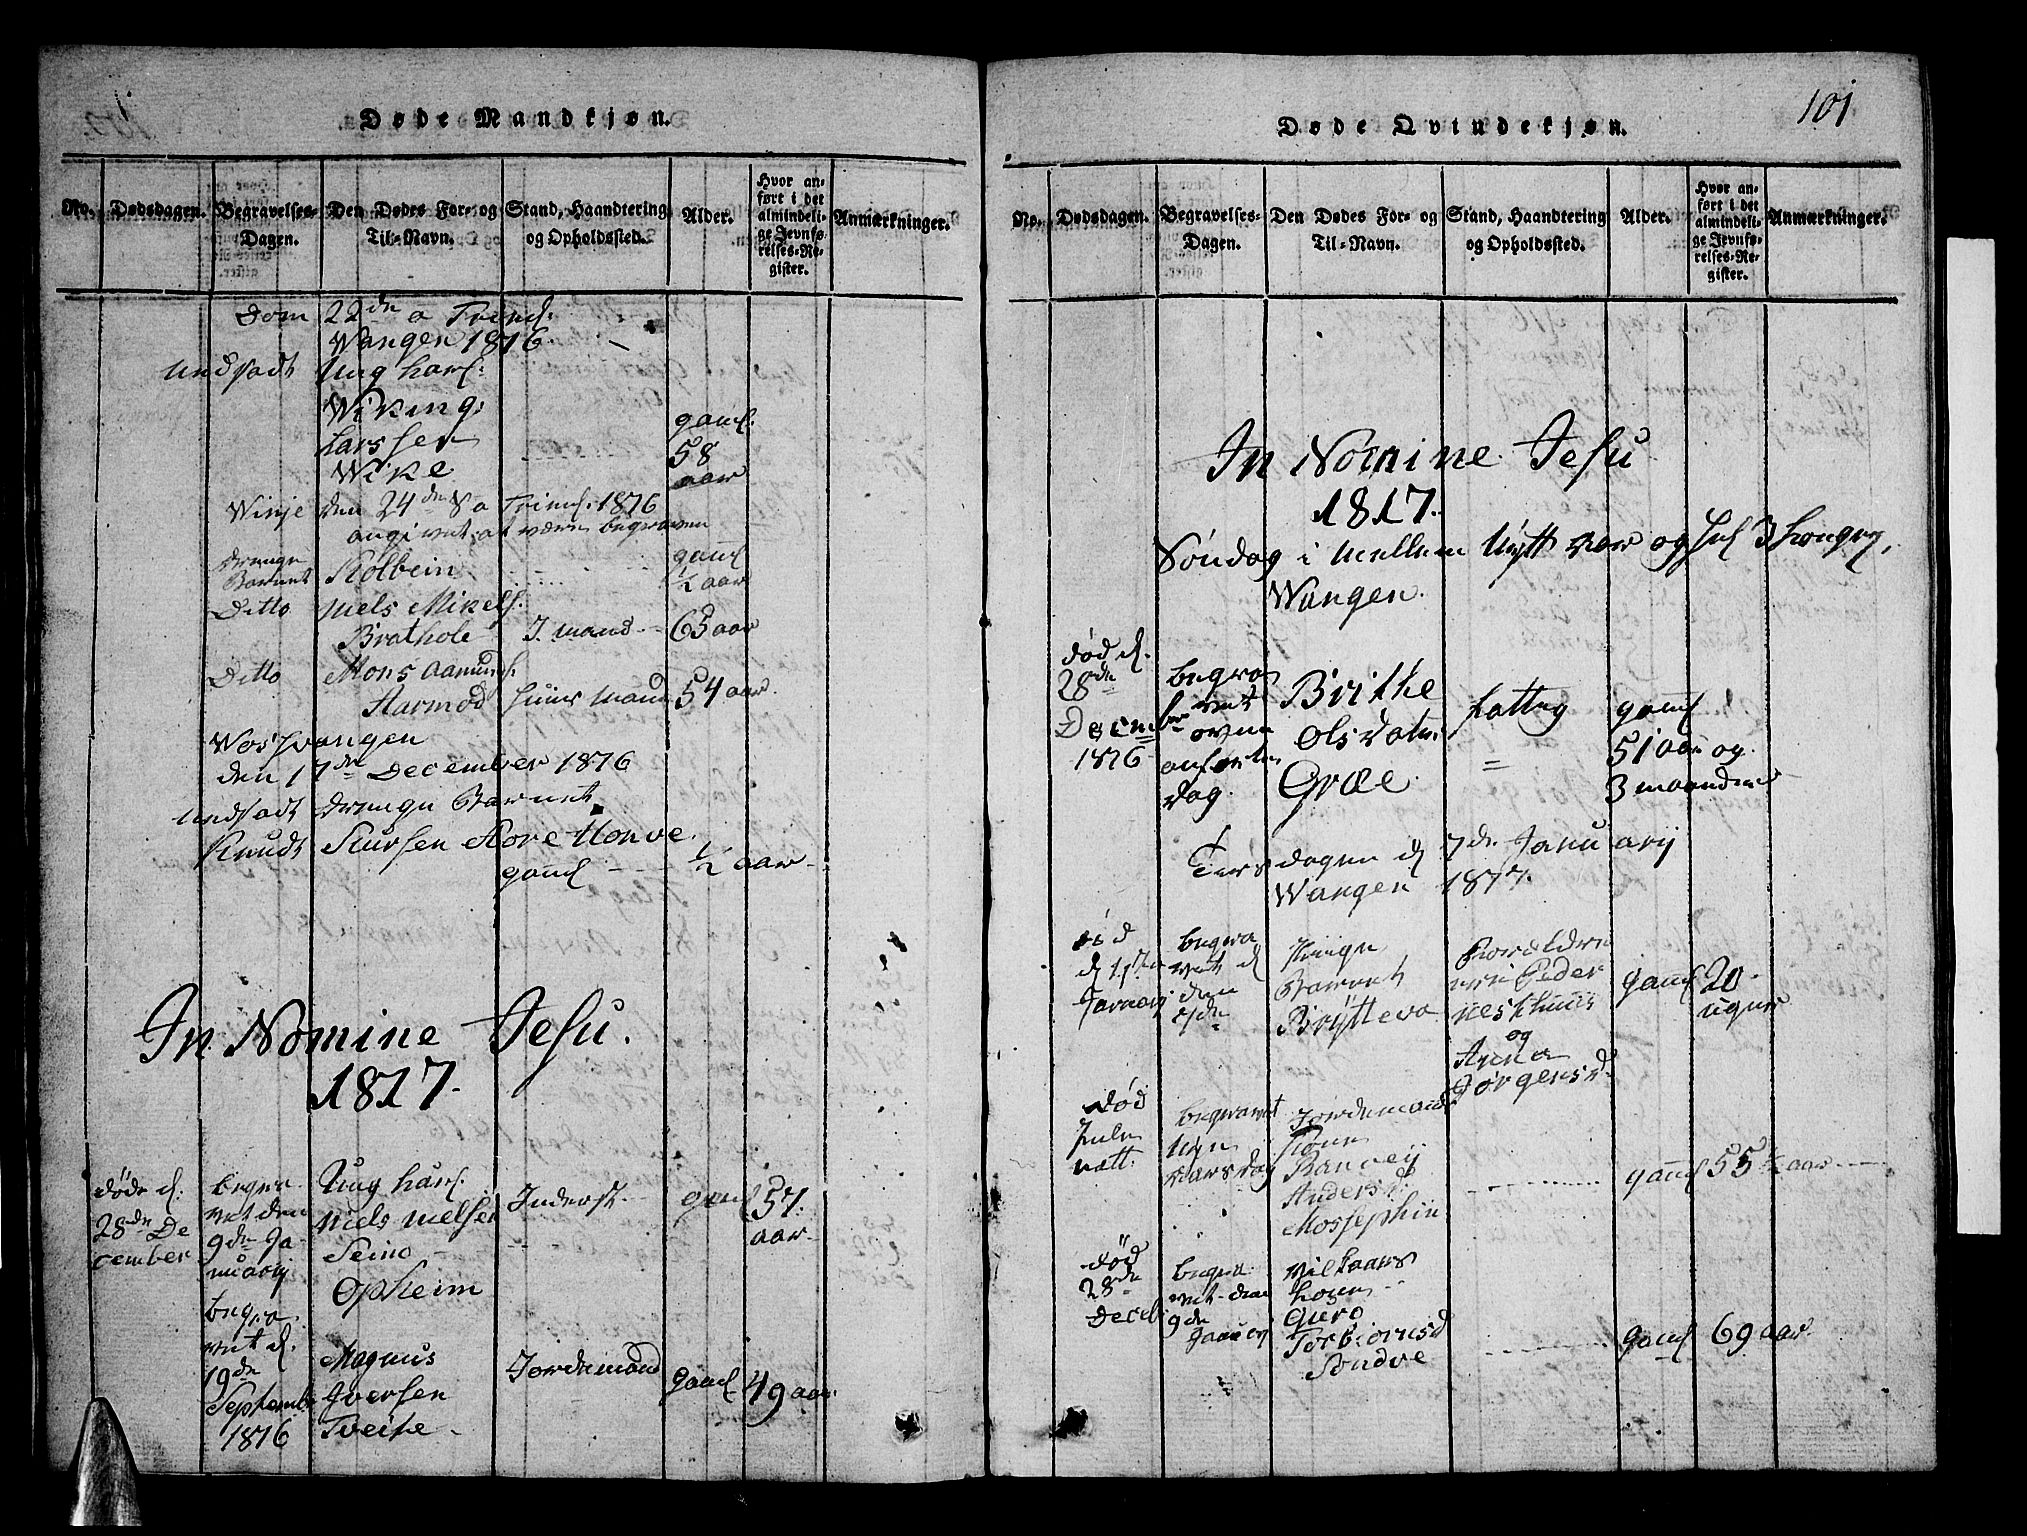 Døde Mandkjøn.
No. Dødsdagen. Begravelses-Dagen. Den Dødes For- og Til-Navn. Stand, Haandtering og Opholdssted. Alder. Hvor anført i det almindelige Jevnførelses-Register. Anmærkninger.
Dom 22de a Trinit:
Wangen 1816.
Ung karl:
Wiking
Larssen
Wike
gaml.
58
aar
Winje den 24de S a Trinit. 1816
angivet at være begraven
drenge Barnet Kolbein gaml ½ aar
Ditto Niels Mikels.
Brathole J. mand 65 aar
Ditto Mons Aamunds.
Aarmod huus Mand 54 aar
Vossevangen
den 17de December 1816
drenge Barnet
Knudt Siursen
gaml ½ aar
In Nomine Jesu.
1817.
døde d. 28de December
begravet den 9de Januarij
Ung karl.
Niels Nielsen
Seino
Opheim
Inderst
gaml 57.
aar
begravet d. 19de September 1816
Magnus
Iversen
Tveite
Jordemand gaml 49 aar.
Døde Qvindekjøn.
101
No. Dødsdagen. Begravelses-Dagen. Den Dødes For- og Til-Navn. Stand, Haandtering og Opholdssted. Alder. Hvor anført i det almindelige Jevnførelses-Register. Anmærkninger.
In Nomine Jesu
1817.
Søndag i mellem Nytt Aar og Hel 3 Konger,
Wangen.
død d. 28de December 1816
begravet oven anførte dag.
Brithe
Olsdater
Græe
fattig
gaml
51 aar og
3 maaneder
Tirsdagen d 7de Januarij
Wangen 1817.
død
begravet
Pige
Barnet
Brytteva
Forældre
og
Anna
Jørgensd.
gaml 20
uger
død
Jule
natt.
begravet
Nyn
aarsdag
Jordemands
Kone
Ranvej
Andersd
Mossephin
gaml 55 ½ aar
død
28de
Decb
begravet den
9de
Januarij
kone
Guro
Torbiornsd
Søndve
gaml 69 aar.